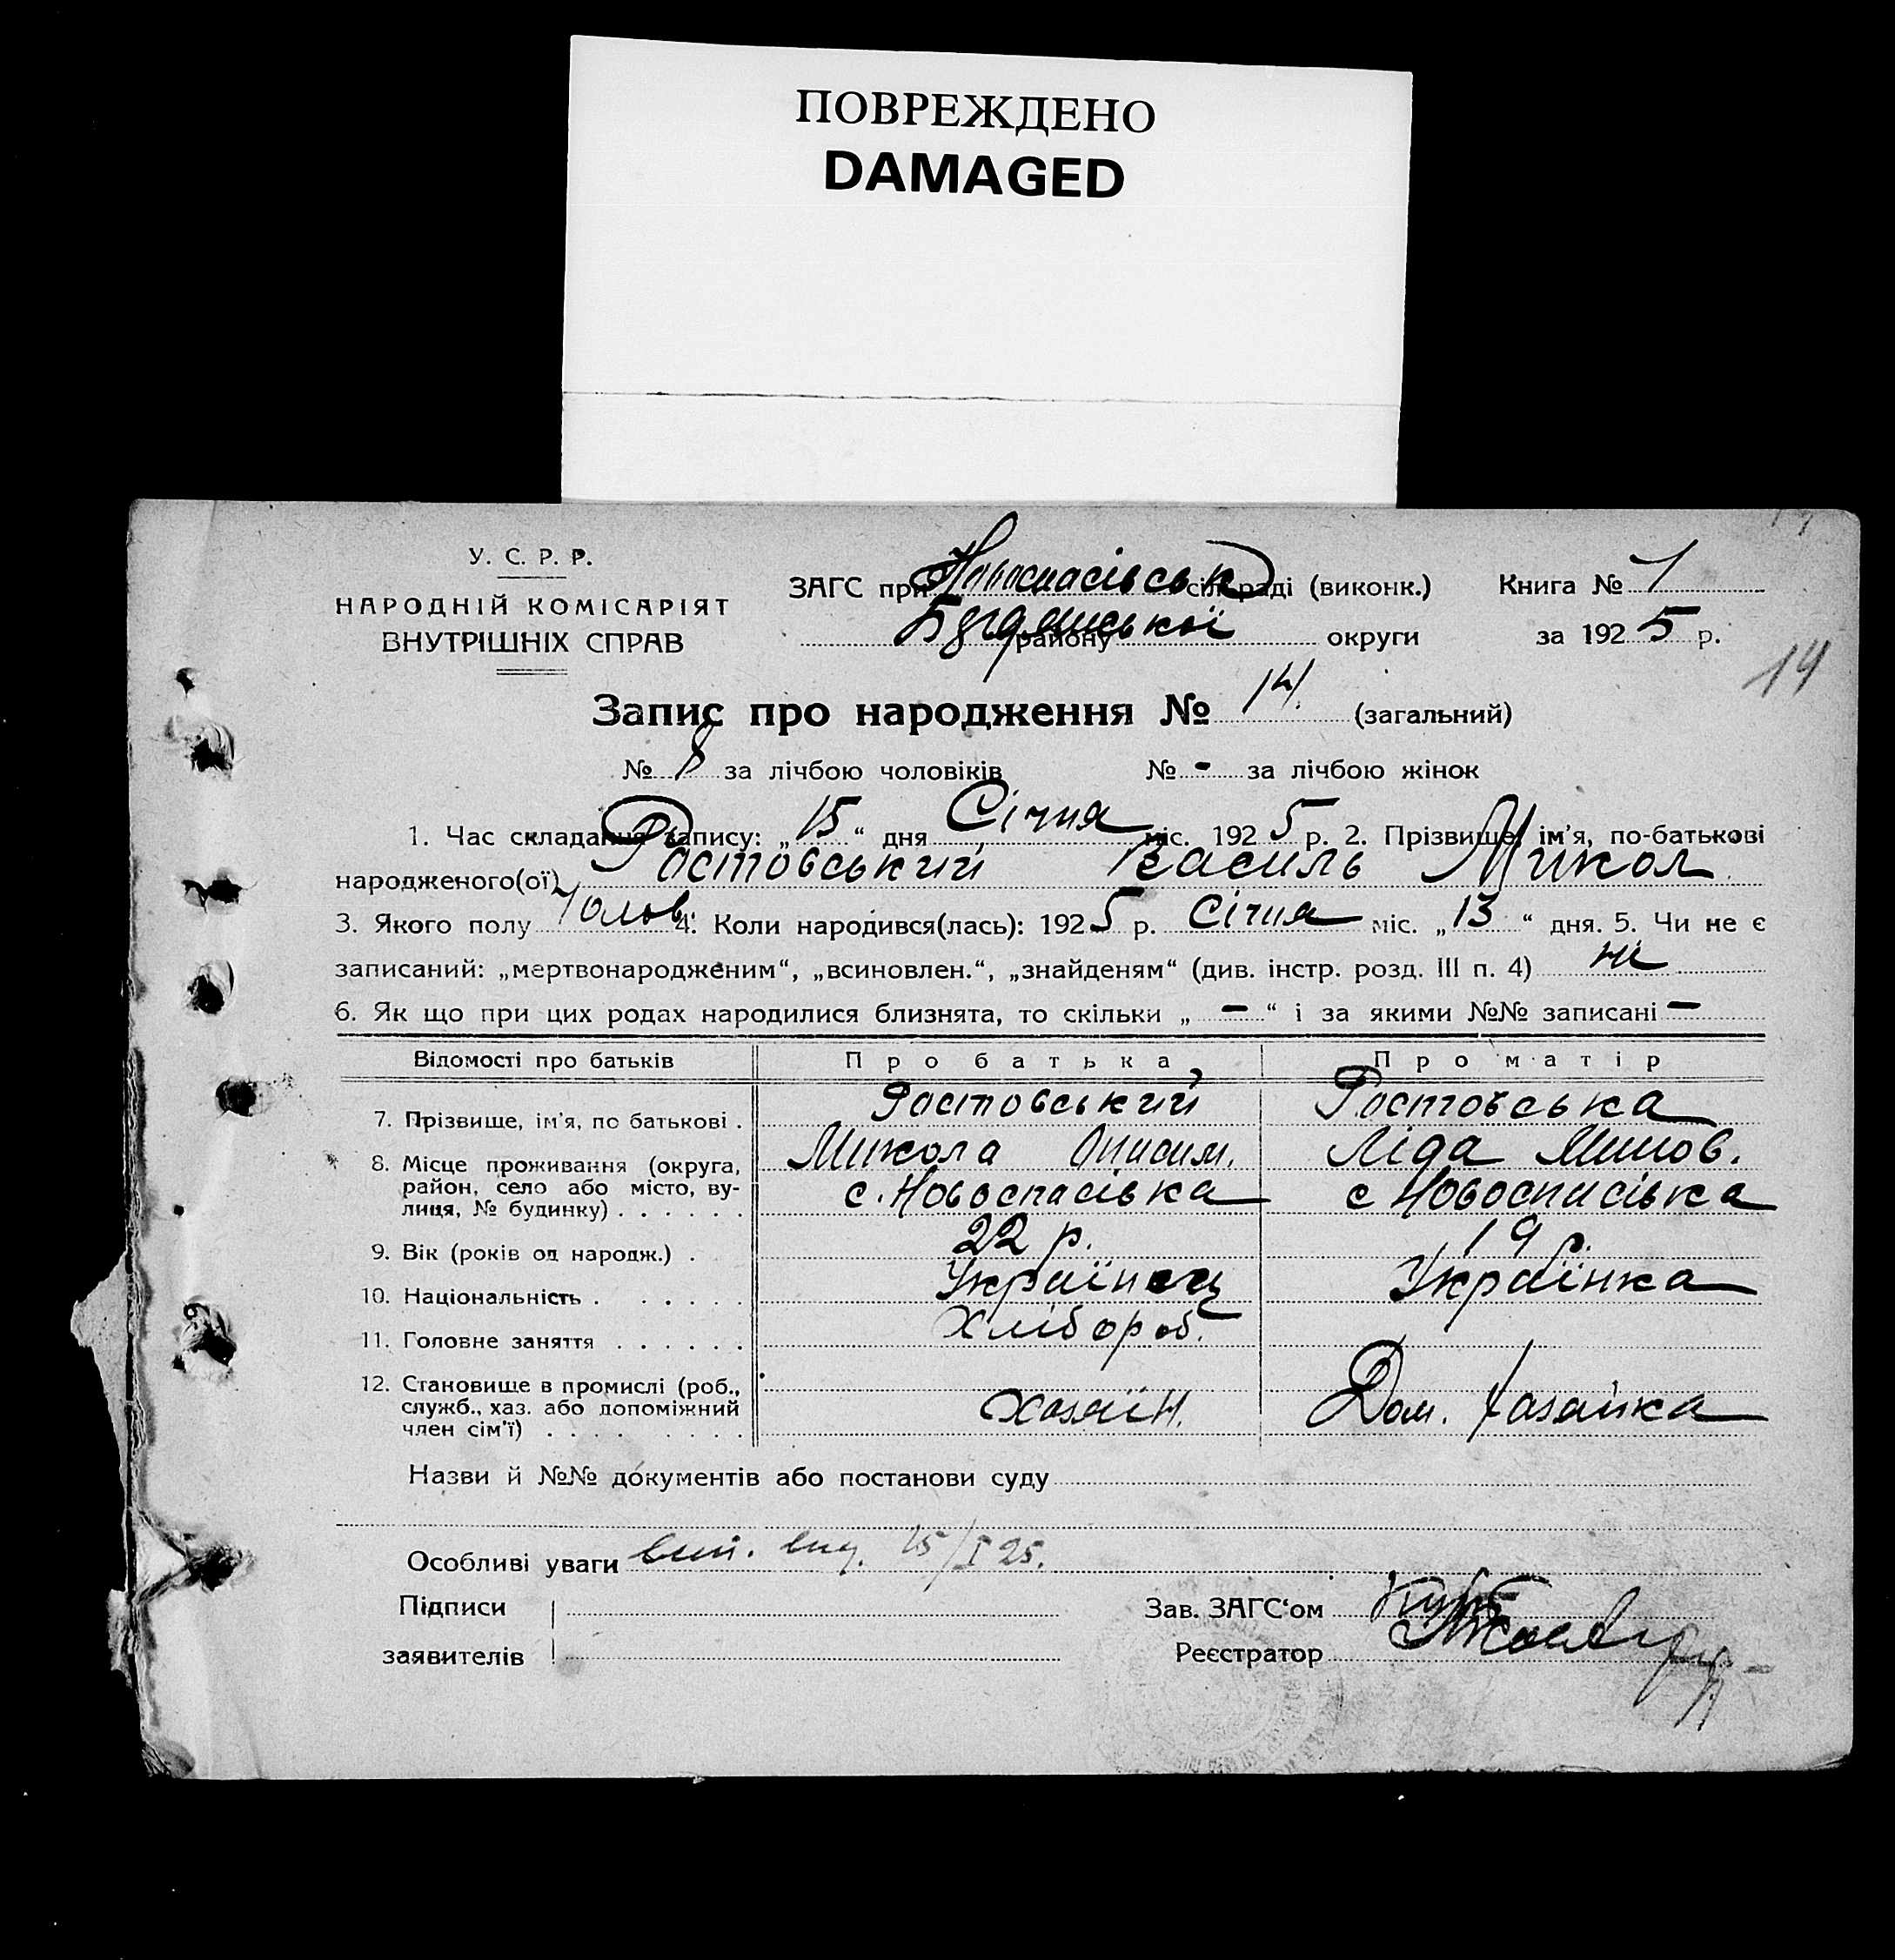 ПОВРЕЖДЕНО
DAMAGED
У. С. Р. Р.
НАРОДНІЙ КОМІСАРІЯТ
ВНУТРІШНІХ СПРАВ
ЗАГС при Новоспасівськ сільраді (виконк.) Книга № 1
району округи за 1925 р.
14
Запис про народження № 14. (загальний)
№ 8 за лічбою чоловіків № - за лічбою жінок
1. Час складання запису: „15“ дня Січня міс. 1925 р. 2. Прізвище, ім'я, по-батькові
народженого(ої) Ростовський Василь Микол.
3. Якого полу Чолов. 4. Коли народився(лась): 1925 р. Січня міс. „13“ дня. 5. Чи не є
записаний: „мертвонародженим“, „всиновлен.“, „знайденям“ (див. інстр. розд. III п. 4) ні
6. Як що при цих родах народилися близнята, то скільки „ — “ і за якими №№ записані —
Відомості про батьків Про батька Про матір
7. Прізвище, ім'я, по батькові . Ростовський Ростовська
Микола Онисим. Ліда
8. Місце проживання (округа, район, село або місто, вулиця, № будинку) . . . . . . с. Новоспасівка с Новоспасівка
9. Вік (років од народж.) . 22 р. 19 р.
10. Національність . . . . . Українец Українка
11. Головне заняття . . . . . . Хлібороб.
12. Становище в промислі (роб., служб., хаз. або допоміжний член сім'ї) . . . . . . . . Хазяїн. Дом. Хазайка
Назви й №№ документів або постанови суду
Особливі уваги 15/I 25.
Підписи Зав. ЗАГС‘ом
заявителів Реєстратор